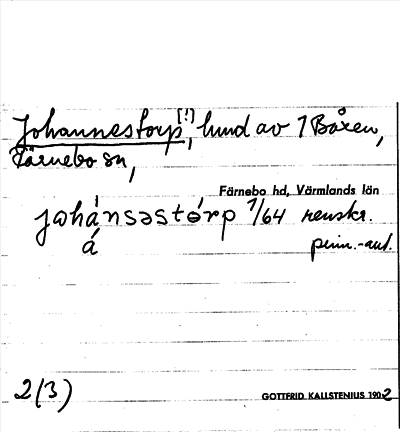 Johannestorp [!], lund av 1 Båxen,
Färnebo sn,
Färnebo hd, Värmlands län
johánsəstórp 1/64 renskr.
á prim.-aut.
2(3)
GOTTFRID KALLSTENIUS 1902